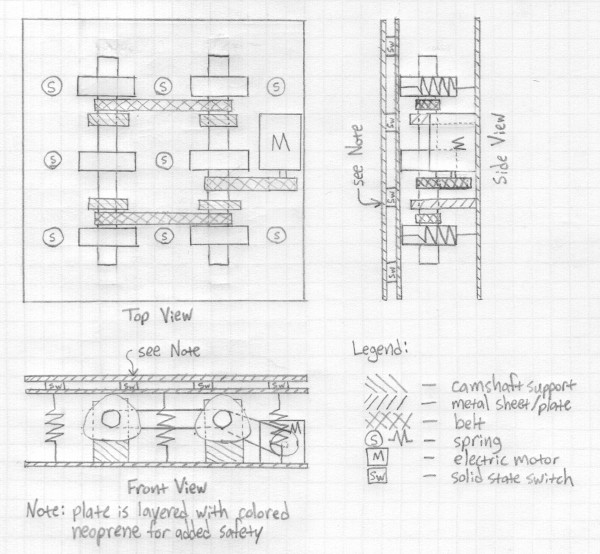 S
S
S
M
S
S
S
S
S
Top View
SW
SW
SW
SW
M
see Note
Side View
see Note
SW
SW
SW
SW
M
Front View
Note: plate is layered with colored
neoprene for added safety
Legend:
— camshaft support
— metal sheet/plate
— belt
S — spring
M — electric motor
SW — solid state switch